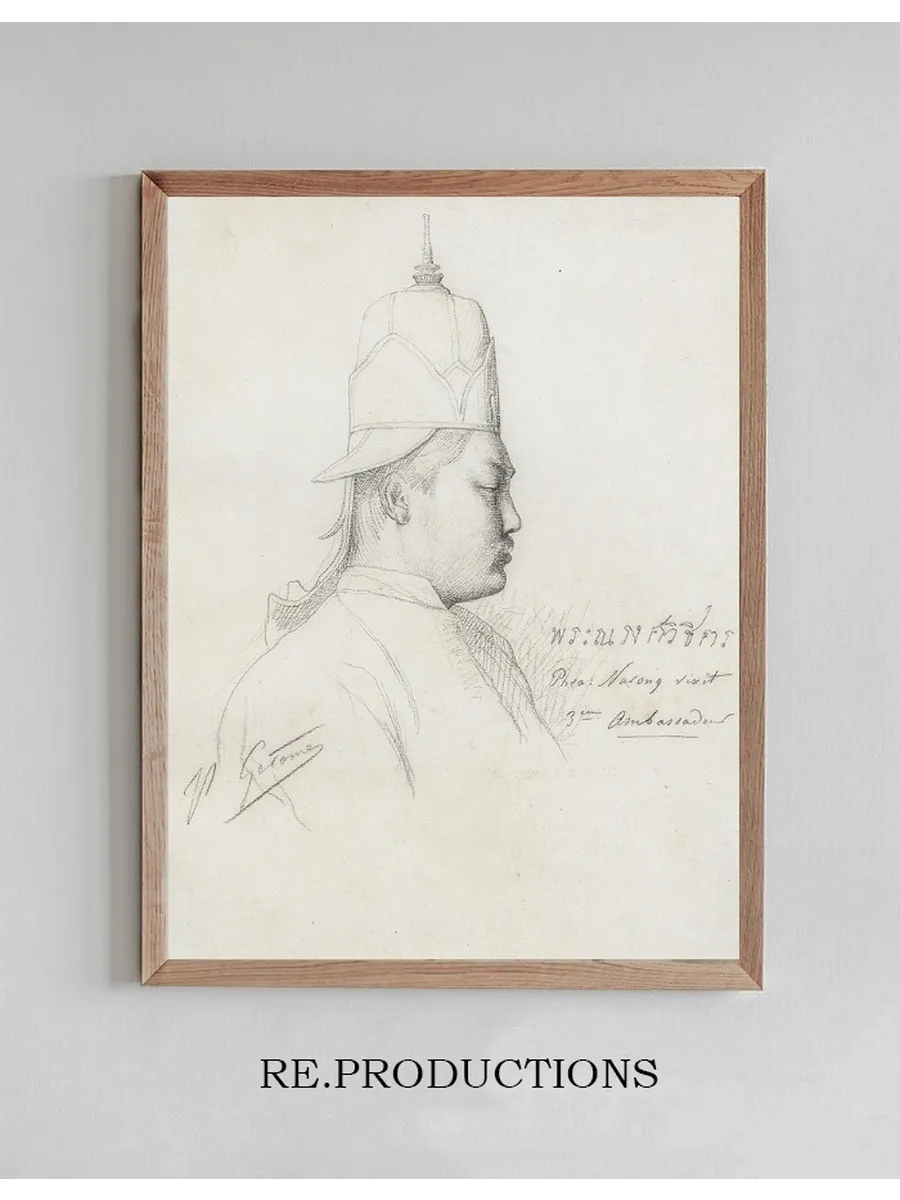 พระณรงค์วิชิต
Phra: Narong vixit
3ième Ambassadeur
Gerome
RE.PRODUCTIONS